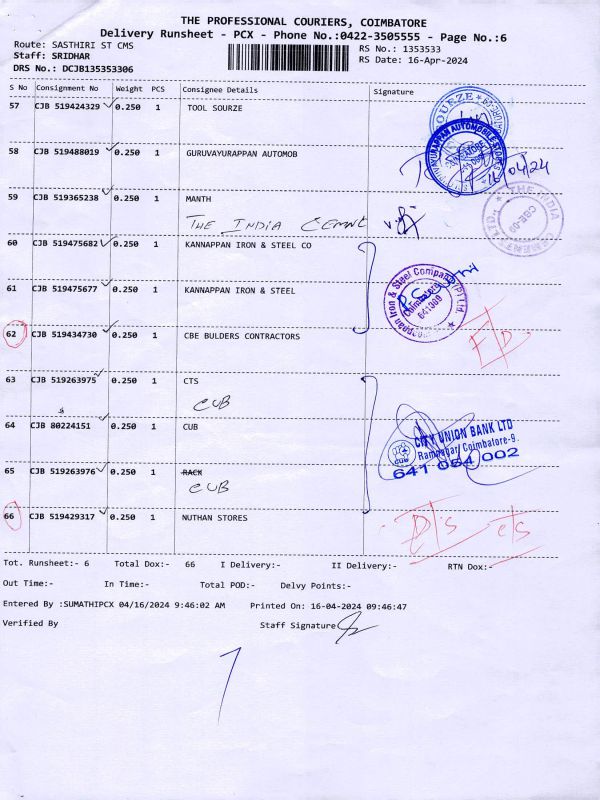 THE PROFESSIONAL COURIERS, COIMBATORE
Delivery Runsheet - PCX - Phone No.:0422-3505555 - Page No.:6
Route: SASTHIRI ST CMS
RS No.: 1353533
Staff: SRIDHAR
RS Date: 16-Apr-2024
DRS No.: DCJB135353306
S No Consignment No Weight PCS Consignee Details Signature
57 CJB 519424329 0.250 1 TOOL SOURZE
58 CJB 519488019 0.250 1 GURUVAYURAPPAN AUTOMOB
16/04/24
59 CJB 519365238 0.250 1 MANTH
THE INDIA CEMNT
THE INDIA CEMENTS LTD. CBE-09
60 CJB 519475682 0.250 1 KANNAPPAN IRON & STEEL CO
61 CJB 519475677 0.250 1 KANNAPPAN IRON & STEEL
Iron & Steel Company (P) Ltd. Coimbatore 641009
62 CJB 519434730 0.250 1 CBE BULDERS CONTRACTORS
63 CJB 519263975 0.250 1 CTS
CUB
64 CJB 80224151 0.250 1 CUB
CITY UNION BANK LTD
Ramnagar, Coimbatore-9.
CUB
641 054 002
65 CJB 519263976 0.250 1 RACK
CUB
66 CJB 519429317 0.250 1 NUTHAN STORES
D/s
Tot. Runsheet:- 6 Total Dox:- 66 I Delivery:- II Delivery:- RTN Dox:-
Out Time:- In Time:- Total POD:- Delvy Points:-
Entered By :SUMATHIPCX 04/16/2024 9:46:02 AM Printed On: 16-04-2024 09:46:47
Verified By Staff Signature